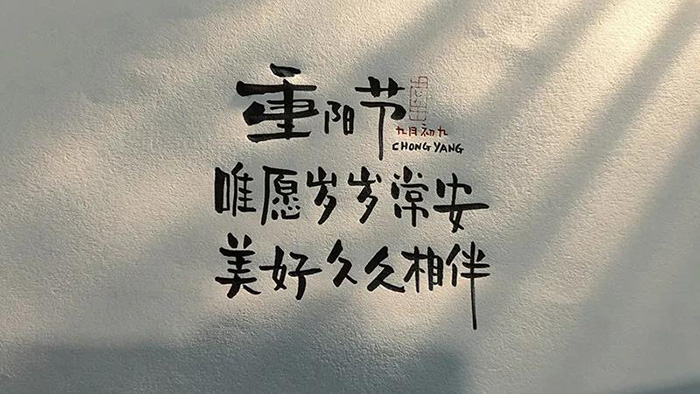 重阳节
九月初九
CHONG YANG
唯愿岁岁常安
美好久久相伴